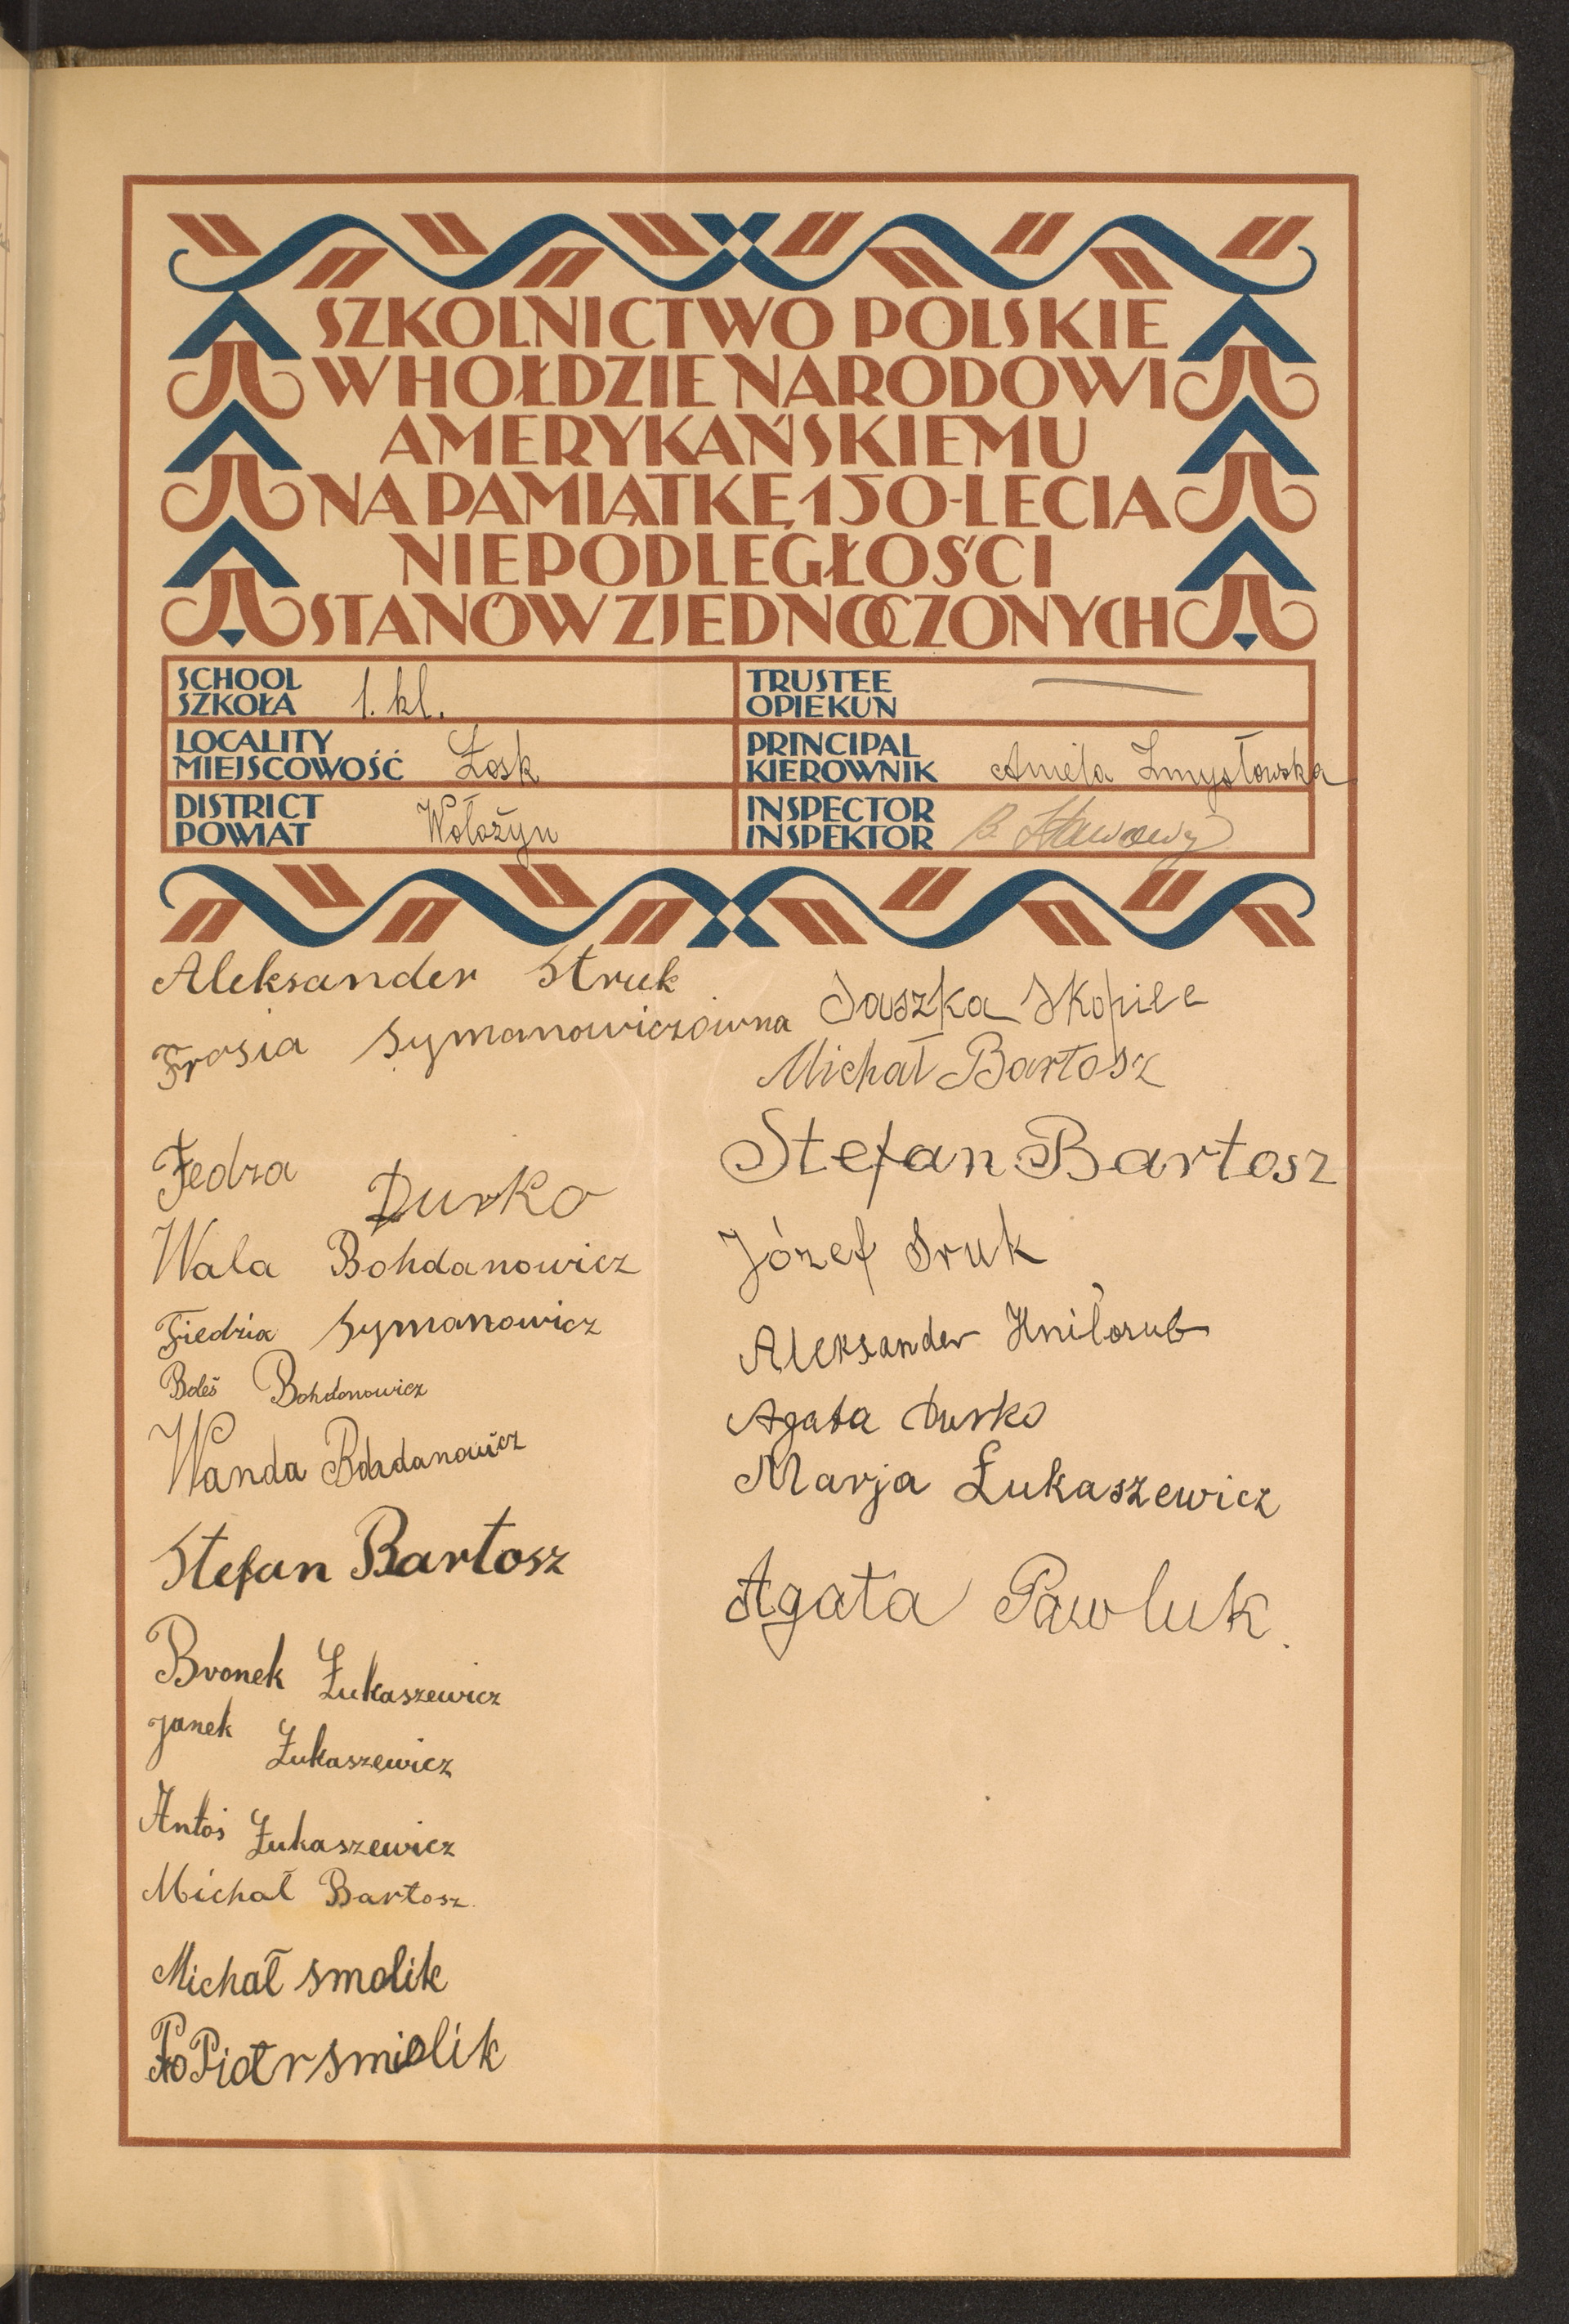 SZKOLNICTWO POLSKIE
W HOŁDZIE NARODOWI
AMERYKAŃSKIEMU
NA PAMIĄTKĘ 150-LECIA
NIEPODLEGŁOŚCI
STANÓW ZJEDNOCZONYCH
SCHOOL
SZKOŁA 1. kl.
TRUSTEE
OPIEKUN
LOCALITY
MIEJSCOWOŚĆ Łosk
PRINCIPAL
KIEROWNIK Aniela Zmysłowska
DISTRICT
POWIAT Wołożyn
INSPECTOR
INSPEKTOR
Aleksander Struk
Frosia Symanowiczówna
Fedza Durko
Wala Bohdanowicz
Fiedzia Symanowicz
Boleś Bohdanowicz
Wanda Bohdanowicz
Stefan Bartosz
Bronek Łukaszewicz
Janek Łukaszewicz
Antoś Łukaszewicz
Michał Bartosz
Michał Smolik
Piotr Smiolik
Saszka Skopiec
Michał Bartosz
Stefan Bartosz
Józef Sruk
Aleksander Hniłozub
Agata Durko
Marja Łukaszewicz
Agata Pawluk.